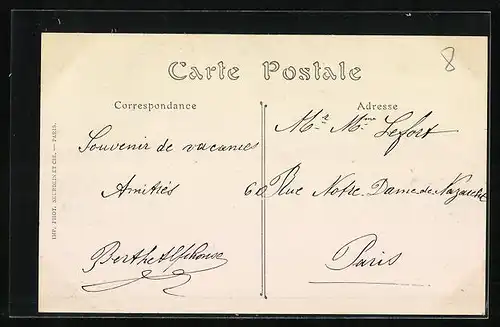 8
Carte Postale
Correspondance
Adresse
Souvenir de vacances
Amitiés
Berthe Alphonse
Mr Mme Lefort
60 Rue Notre Dame de Nazareth
Paris
IMP. PHOT. NEURDEIN ET CIE. — PARIS.